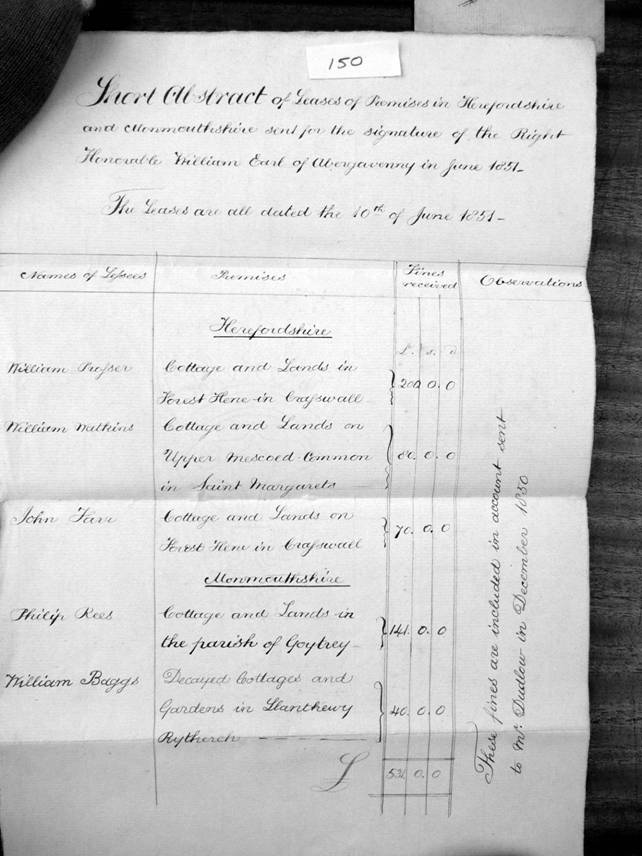 150
Short Abstract of Leases of Premises in Herefordshire
and Monmouthshire sent for the signature of the Right
Honorable William Earl of Abergavenny in June 1851-
The Leases are all dated the 10th of June 1851-
Names of Lessees Premises Fines received Observations
Herefordshire
£. s. d
William Prosser Cottage and Lands in
Forest Hene in Crasswall 200. 0. 0
William Watkins Cottage and Lands on
Upper Mescoed Common 80. 0. 0
in Saint Margarets
John Farr Cottage and Lands on
Forest Hene in Crasswall 70. 0. 0
Monmouthshire
Philip Rees Cottage and Lands in
the parish of Goytrey- 141. 0. 0
William Baggs Decayed Cottages and
Gardens in Llanthewy 40. 0. 0
Rytherch
£ 531. 0. 0
These fines are included in account sent
to Mr. Dudlow in December 1850